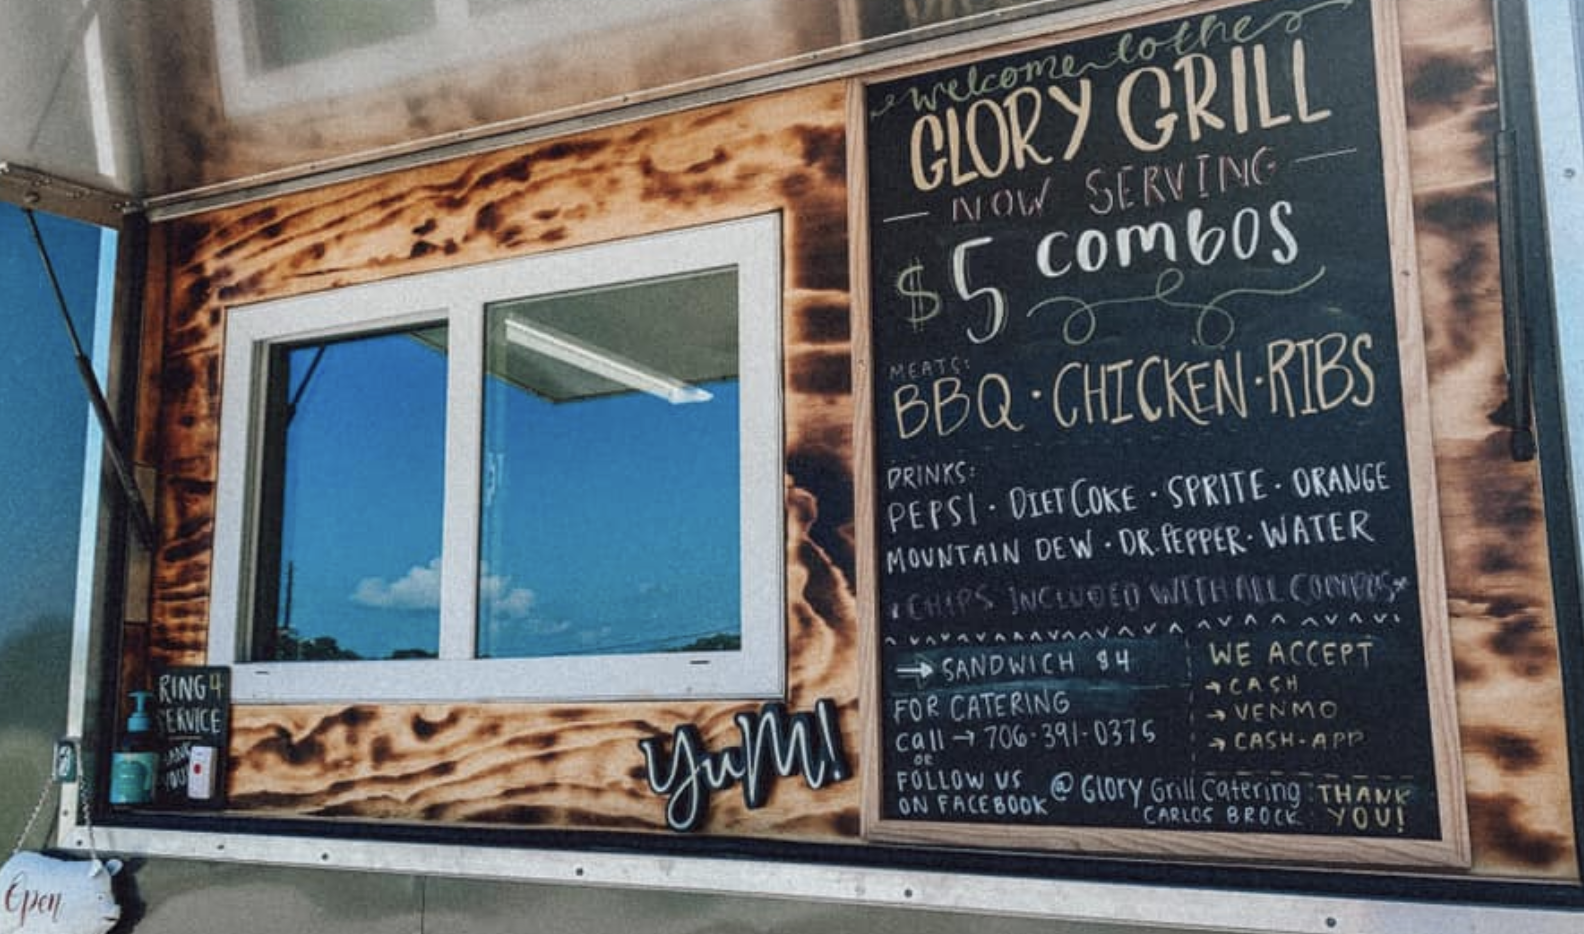 welcome to the
GLORY GRILL
NOW SERVING
$5 combos
MEATS:
BBQ · CHICKEN · RIBS
DRINKS:
PEPSI · DIET COKE · SPRITE · ORANGE
MOUNTAIN DEW · DR. PEPPER · WATER
*CHIPS INCLUDED WITH ALL COMBOS*
→ SANDWICH $4
FOR CATERING
call → 706-391-0375
OR
FOLLOW US
ON FACEBOOK
@ Glory Grill Catering
CARLOS BROCK
WE ACCEPT
→ CASH
→ VENMO
→ CASH-APP
THANK
YOU!
YuM!
RING 4
SERVICE
YOU!
Open